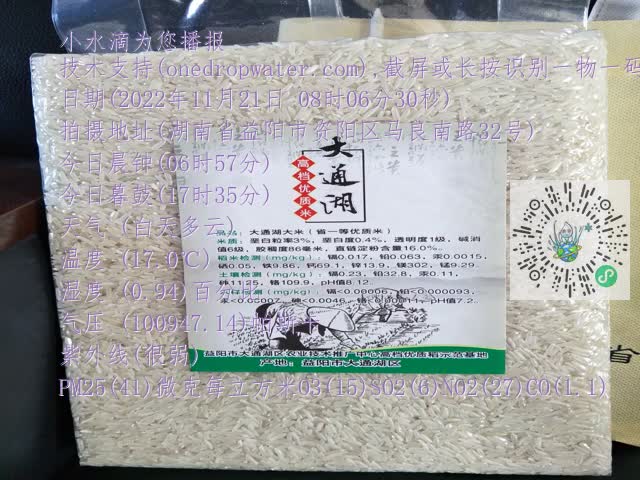 小水滴为您播报
技术支持(onedropwater.com),截屏或长按识别一物一码
日期(2022年11月21日 08时06分30秒)
拍摄地址(湖南省益阳市资阳区马良南路32号)
今日晨钟(06时57分)
今日暮鼓(17时35分)
天气 (白天多云)
温度 (17.0℃)
湿度 (0.94)百分
气压 (100947.14)帕斯卡
紫外线(很弱)
PM25(41)微克每立方米O3(15)SO2(6)NO2(27)CO(1.1)
大通湖
高档优质米
品名: 大通湖大米(省一等优质米)
米质: 垩白粒率3%, 垩白度0.4%, 透明度1级, 碱消
值6级, 胶稠度86毫米, 直链淀粉含量16.0%。
稻米检测(mg/kg): 镉0.017, 铅0.063, 汞0.0015,
硒0.05, 铁9.86, 钙69.1, 锌13.9, 镁302, 锰9.29.
土壤检测(mg/kg): 镉0.23, 铅32.8, 汞0.11,
砷11.25, 铬109.9, pH值8.12.
镉<0.00006, 铅<0.000093,
汞<0.00007, 砷<0.0046, pH值7.2.
益阳市大通湖区农业技术推广中心高档优质稻示范基地
产地: 益阳市大通湖区
省